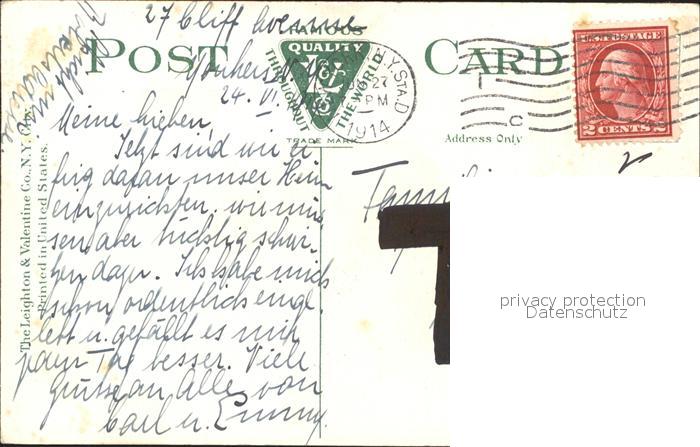 27 Cliff Avenue
POST CARD
FAMOUS
QUALITY
THROUGHOUT THE WORLD
TRADE MARK
Yonkers N.Y.
24. VI.
N.Y. STA. D
27
PM
1914
C
U.S. POSTAGE
2 CENTS 2
Address Only
The Leighton & Valentine Co., N.Y. City.
Printed in United States.
Meine Lieben
Jetzt sind wir ei-
frig daran unser Heim
einzurichten, wir müs-
sen aber tüchtig schwi-
tzen dazu. Ich habe mich
schon ordentlich einge-
lebt u. gefällt es mir
jeden Tag besser. Viele
Grüsse an Alle von
Carl u. Emmy.
privacy protection
Datenschutz